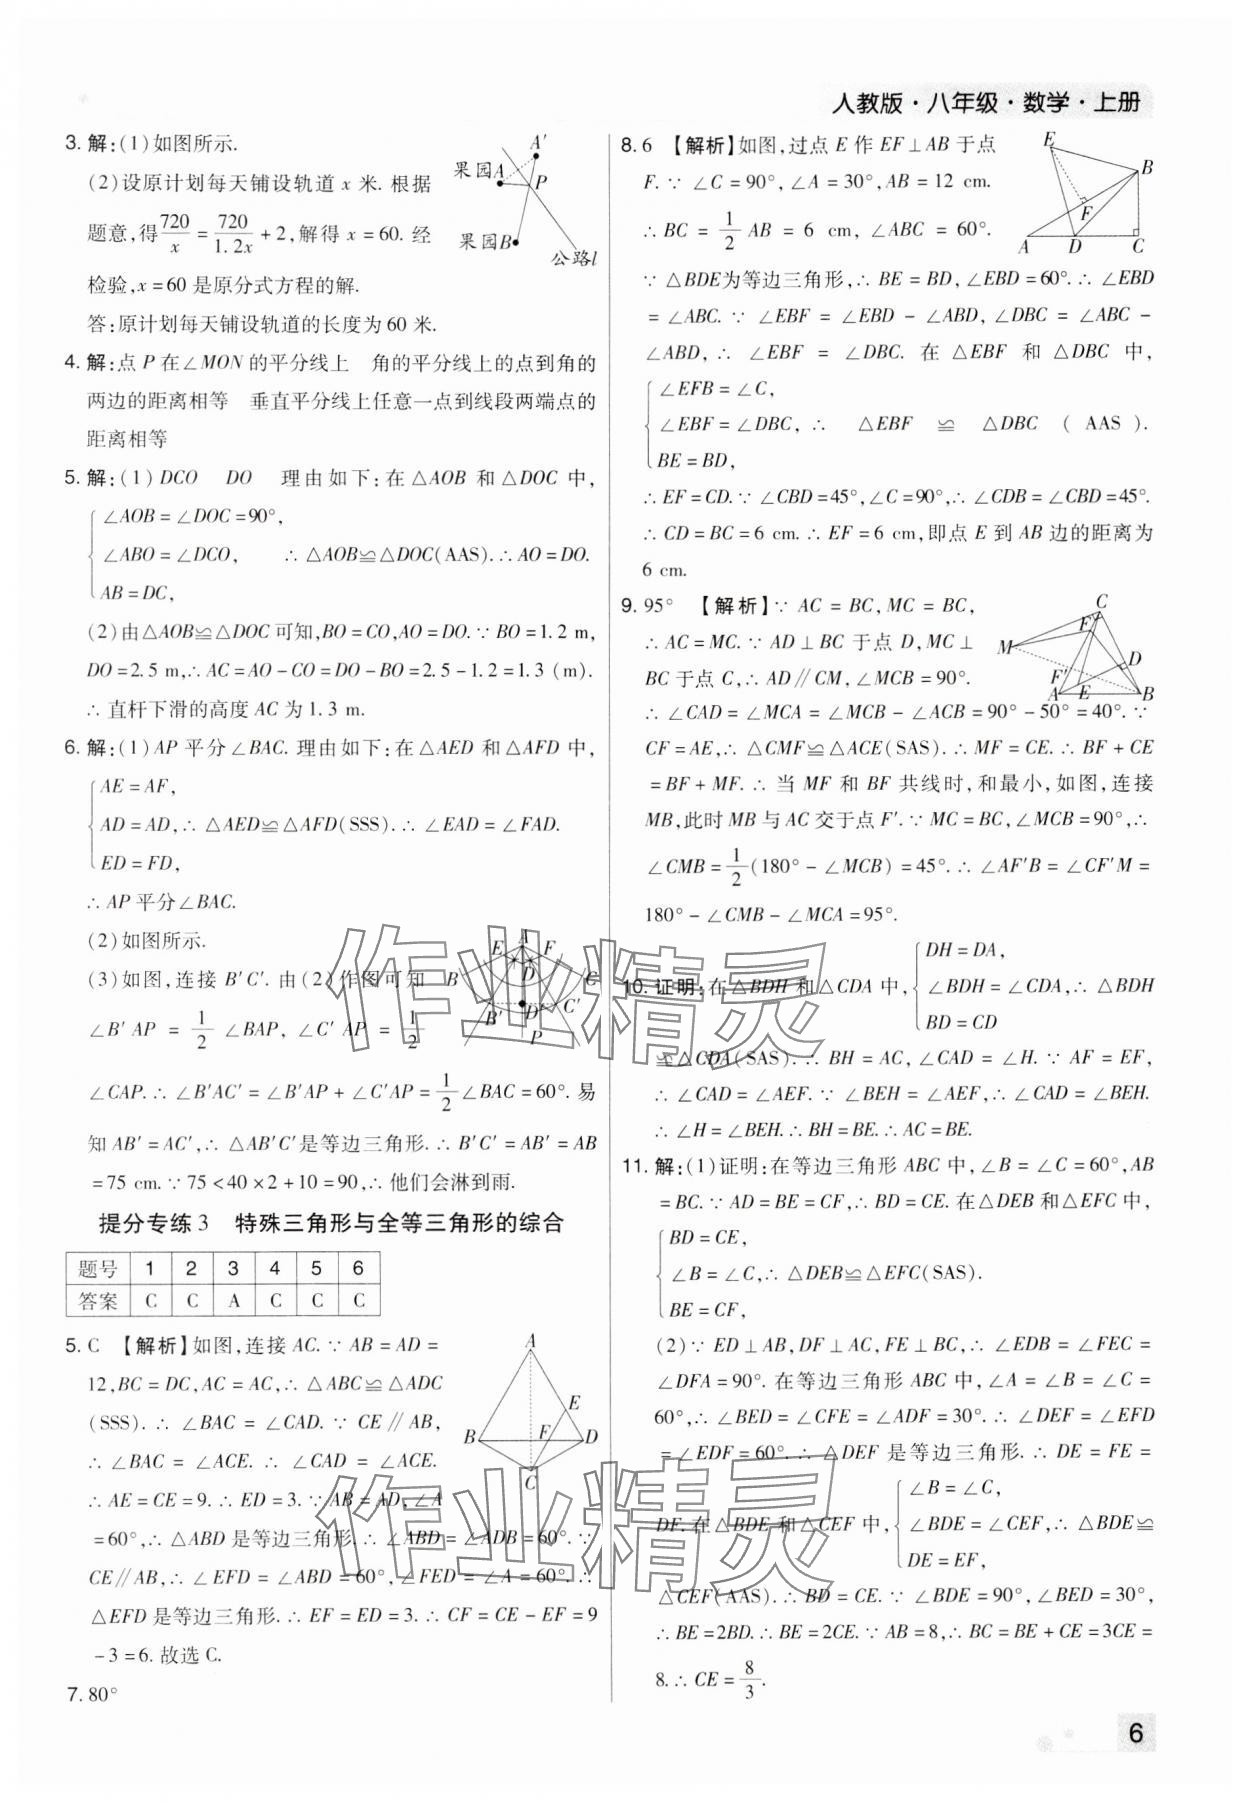 人教版·八年级·数学·上册
3. 解:(1)如图所示.
(2)设原计划每天铺设轨道 x 米. 根据
题意,得720/x=720/1.2x+2,解得 x=60. 经
检验,x=60 是原分式方程的解.
答:原计划每天铺设轨道的长度为 60 米.
A′
果园A
P
果园B
公路l
4. 解:点 P 在∠MON 的平分线上　角的平分线上的点到角的
两边的距离相等　垂直平分线上任意一点到线段两端点的
距离相等
5. 解:(1) DCO　DO　理由如下:在△AOB 和△DOC 中,
∠AOB=∠DOC=90°,
∠ABO=∠DCO,　∴△AOB≌△DOC(AAS).∴AO=DO.
AB=DC,
(2)由△AOB≌△DOC 可知,BO=CO,AO=DO.∵BO=1.2 m,
DO=2.5 m,∴AC=AO-CO=DO-BO=2.5-1.2=1.3 (m).
∴直杆下滑的高度 AC 为 1.3 m.
6. 解:(1)AP 平分∠BAC. 理由如下:在△AED 和△AFD 中,
AE=AF,
AD=AD,∴△AED≌△AFD(SSS).∴∠EAD=∠FAD.
ED=FD,
∴AP 平分∠BAC.
(2)如图所示.
(3)如图,连接 B′C′. 由(2)作图可知
∠B′AP=1/2∠BAP,∠C′AP=1/2
∠CAP.∴∠B′AC′=∠B′AP+∠C′AP=1/2∠BAC=60°. 易
知 AB′=AC′,∴△AB′C′是等边三角形.∴B′C′=AB′=AB
=75 cm.∵75<40×2+10=90,∴他们会淋到雨.
A
E
F
B
D
C
B′
D′
C′
P
提分专练 3　特殊三角形与全等三角形的综合
题号 1 2 3 4 5 6
答案 C C A C C C
5. C 【解析】如图,连接 AC.∵AB=AD=
12,BC=DC,AC=AC,∴△ABC≌△ADC
(SSS).∴∠BAC=∠CAD.∵CE∥AB,
∴∠BAC=∠ACE.∴∠CAD=∠ACE.
∴AE=CE=9.∴ED=3.∵AB=AD,∠A
=60°,∴△ABD 是等边三角形.∴∠ABD=∠ADB=60°.∵
CE∥AB,∴∠EFD=∠ABD=60°,∠FED=∠A=60°.∴
△EFD 是等边三角形.∴EF=ED=3.∴CF=CE-EF=9
-3=6. 故选 C.
A
E
B
F
D
C
7. 80°
8. 6 【解析】如图,过点 E 作 EF⊥AB 于点
F.∵∠C=90°,∠A=30°,AB=12 cm.
∴BC=1/2AB=6 cm,∠ABC=60°.
∵△BDE为等边三角形,∴BE=BD,∠EBD=60°.∴∠EBD
=∠ABC.∵∠EBF=∠EBD-∠ABD,∠DBC=∠ABC-
∠ABD,∴∠EBF=∠DBC. 在△EBF 和△DBC 中,
∠EFB=∠C,
∠EBF=∠DBC,∴△EBF≌△DBC(AAS).
BE=BD,
∴EF=CD.∵∠CBD=45°,∠C=90°,∴∠CDB=∠CBD=45°.
∴CD=BC=6 cm.∴EF=6 cm,即点 E 到 AB 边的距离为
6 cm.
E
B
F
A
D
C
9. 95° 【解析】∵AC=BC,MC=BC,
∴AC=MC.∵AD⊥BC 于点 D,MC⊥
BC于点 C,∴AD∥CM,∠MCB=90°.
∴∠CAD=∠MCA=∠MCB-∠ACB=90°-50°=40°.∵
CF=AE,∴△CMF≌△ACE(SAS).∴MF=CE.∴BF+CE
=BF+MF.∴当 MF 和 BF 共线时,和最小,如图,连接
MB,此时 MB 与 AC 交于点 F′.∵MC=BC,∠MCB=90°,∴
∠CMB=1/2(180°-∠MCB)=45°.∴∠AF′B=∠CF′M=
180°-∠CMB-∠MCA=95°.
C
F
M
D
F′
A
E
B
DH=DA,
10. 证明:在△BDH 和△CDA 中,∠BDH=∠CDA,∴△BDH
BD=CD
≌△CDA(SAS).∴BH=AC,∠CAD=∠H.∵AF=EF,
∴∠CAD=∠AEF.∵∠BEH=∠AEF,∴∠CAD=∠BEH.
∴∠H=∠BEH.∴BH=BE.∴AC=BE.
11. 解:(1)证明:在等边三角形 ABC 中,∠B=∠C=60°,AB
=BC.∵AD=BE=CF,∴BD=CE. 在△DEB 和△EFC 中,
BD=CE,
∠B=∠C,∴△DEB≌△EFC(SAS).
BE=CF,
(2)∵ED⊥AB,DF⊥AC,FE⊥BC,∴∠EDB=∠FEC
=∠DFA=90°. 在等边三角形 ABC 中,∠A=∠B=∠C=
60°,∴∠BED=∠CFE=∠ADF=30°.∴∠DEF=∠EFD
=∠EDF=60°.∴△DEF 是等边三角形.∴DE=FE=
∠B=∠C,
DF. 在△BDE 和△CEF 中,∠BDE=∠CEF,∴△BDE≌
DE=EF,
△CEF(AAS).∴BD=CE.∵∠BDE=90°,∠BED=30°,
∴BE=2BD.∴BE=2CE.∵AB=8,∴BC=BE+CE=3CE=
8.∴CE=8/3.
作业精灵
作业精灵
6